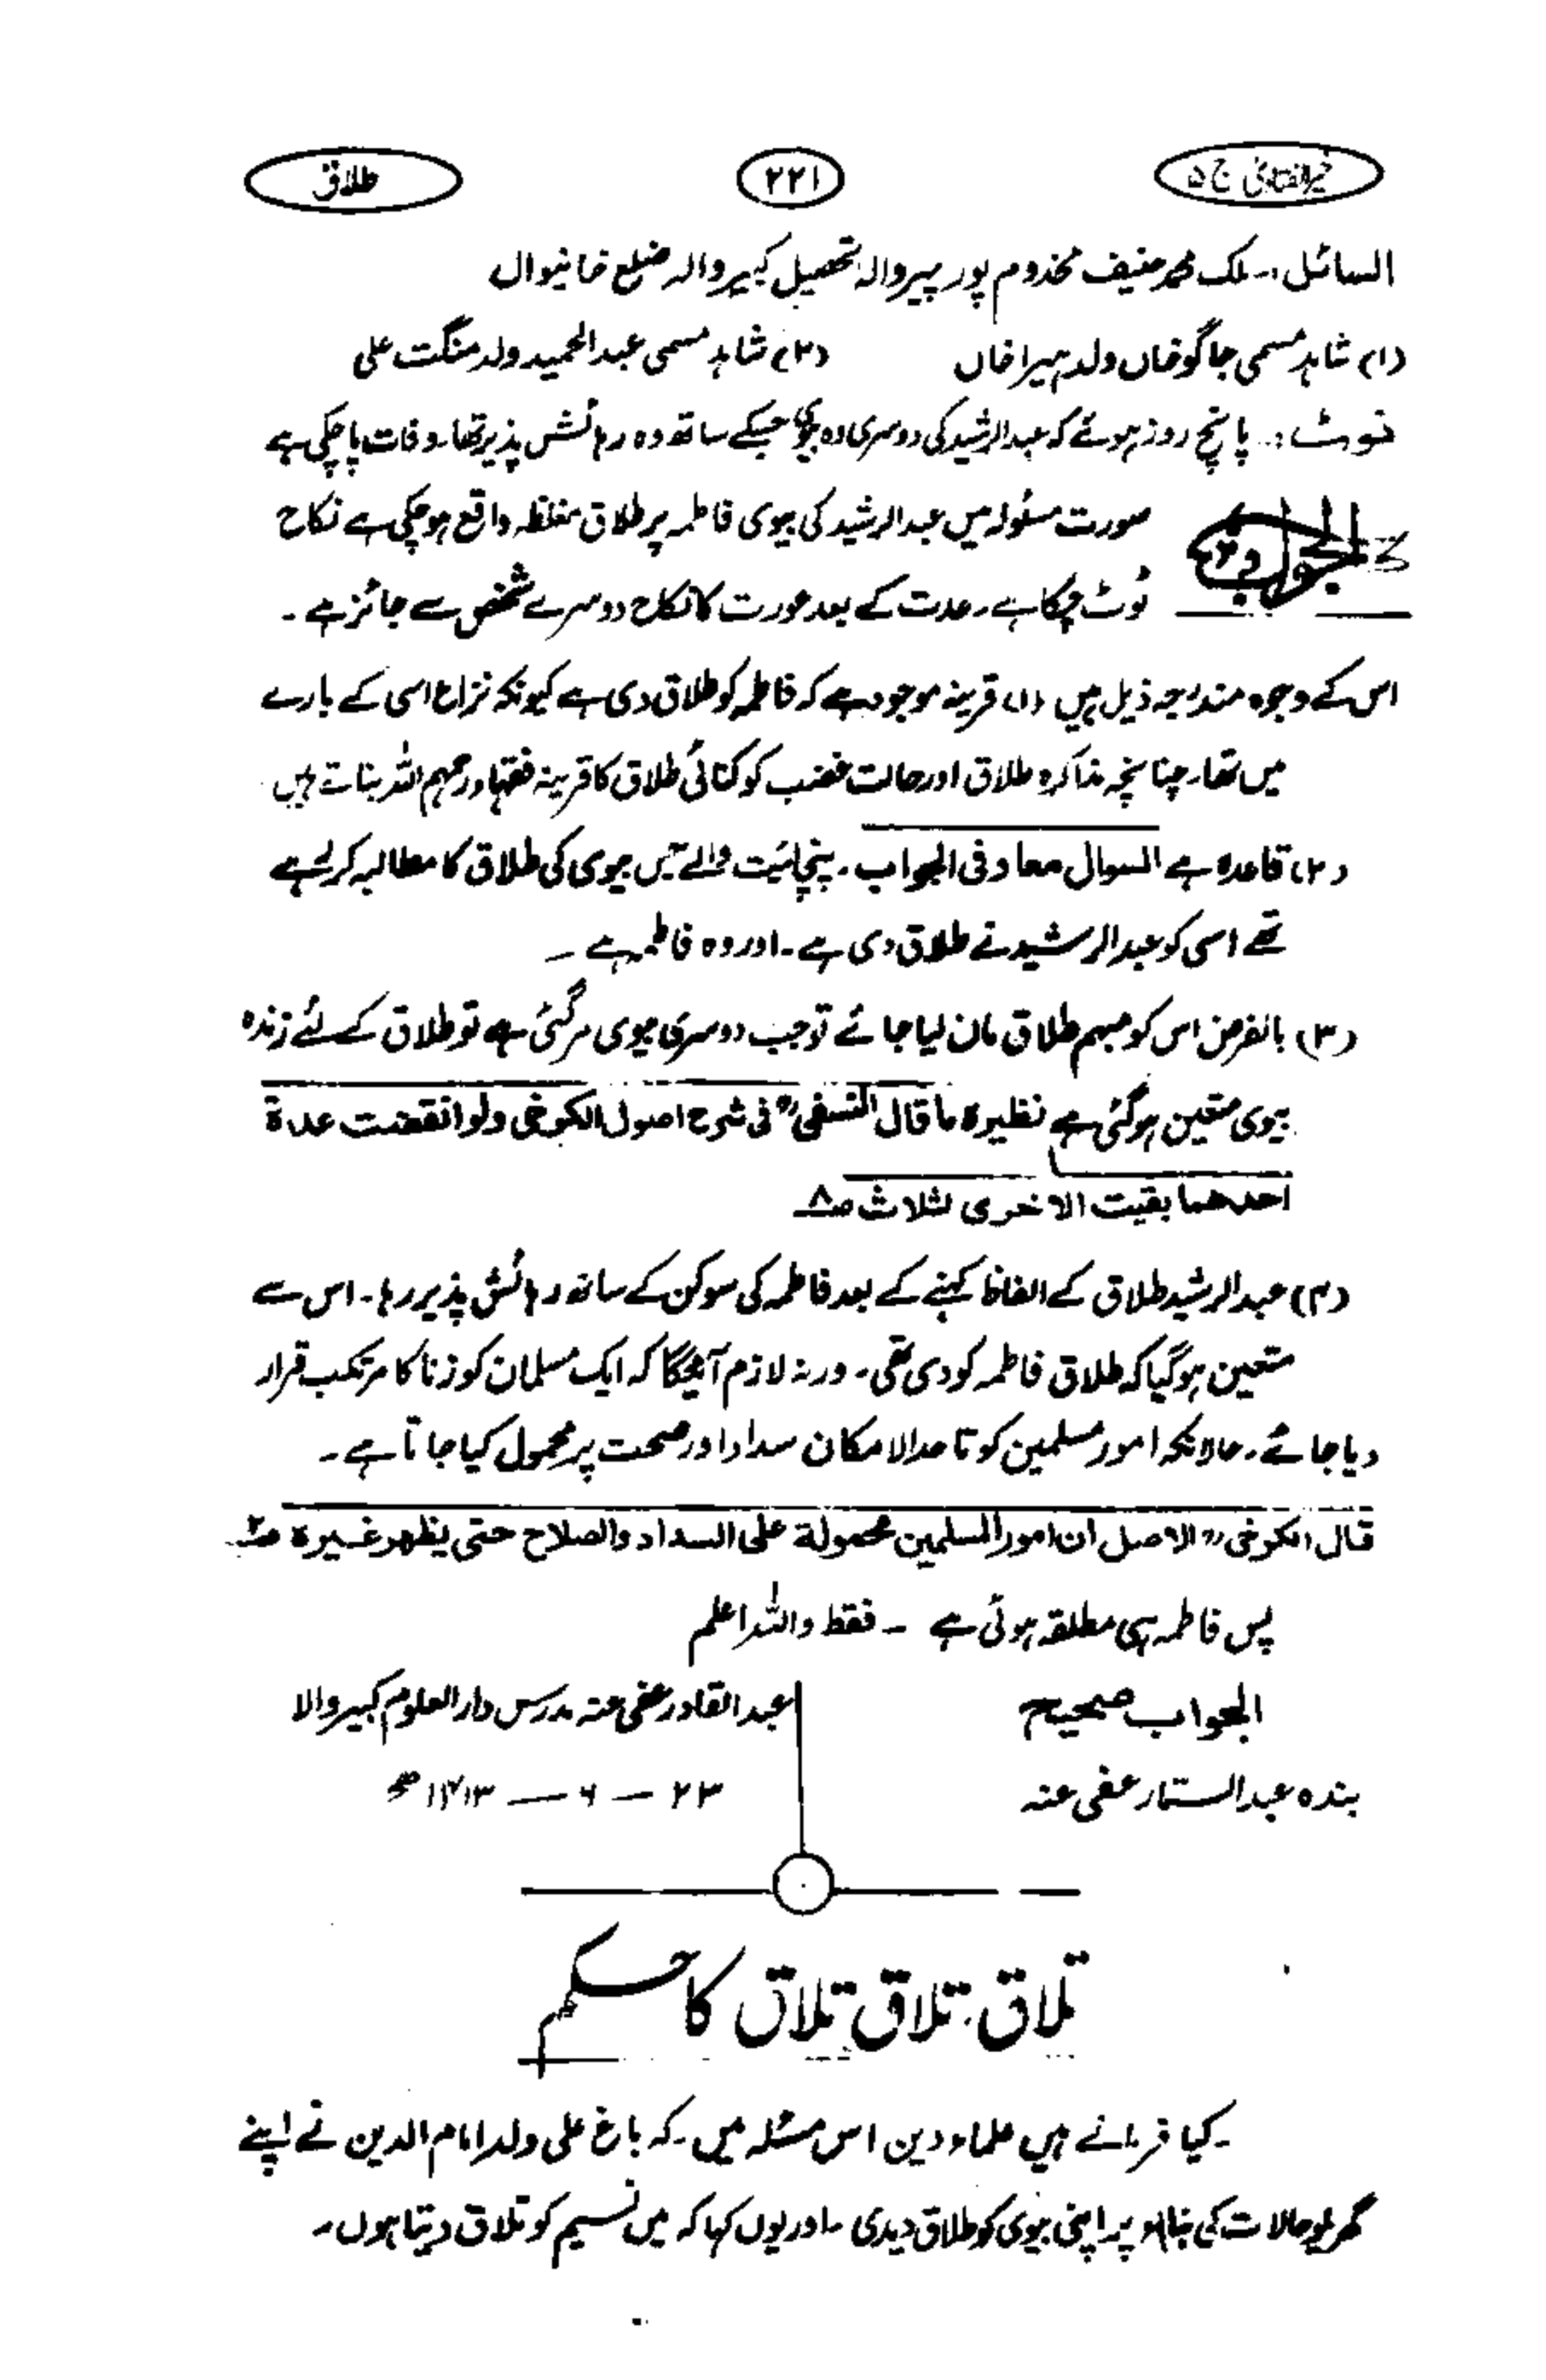 خیر الفتاوی ج ۵
۲۲۱
طلاق
السائل :۔ ملک محمد حنیف مخدوم پور پیروالہ تحصیل کبیروالہ ضلع خانیوال
(۱) شاہد مسمی جاگو خاں ولد ہیرا خاں (۲) شاہد مسمی عبدالحمید ولد منگت علی
نوٹ :۔ پانچ روز ہوئے کہ عبدالرشید کی دوسری وہ بیوی جسکے ساتھ وہ رہائش پذیر تھا۔ وفات پاچکی ہے
الجواب صورت مسئولہ میں عبدالرشید کی بیوی فاطمہ پر طلاق مغلظہ واقع ہوچکی ہے نکاح
ٹوٹ چکا ہے۔ عدت کے بعد عورت کا نکاح دوسرے شخص سے جائز ہے۔
اس کے وجوہ مندرجہ ذیل ہیں (۱) قرینہ موجود ہے کہ فاطمہ کو طلاق دی ہے کیونکہ نزاع اسی کے بارے
میں تھا۔ چنانچہ مذاکرہ طلاق اور حالت غضب کو کنائی طلاق کا قرینہ فقہاء رحمہم اللہ بناتے ہیں
(۲) قاعدہ ہے السوال معاد فی الجواب۔ پنچائیت والے جس بیوی کی طلاق کا مطالبہ کر رہے
تھے اسی کو عبدالرشید نے طلاق دی ہے۔ اور وہ فاطمہ ہے۔
(۳) بالفرض اس کو مبہم طلاق مان لیا جائے تو جب دوسری بیوی مرگئی ہے تو طلاق کے لئے زندہ
بیوی متعین ہوگئی ہے نظیرہ ما قال النسفیؒ فی شرح اصول الکرخی ولو انقضت عدة
احدهما بقیت الاخری لثلاث ص۸
(۴) عبدالرشید طلاق کے الفاظ کہنے کے بعد فاطمہ کی سوکن کے ساتھ رہائش پذیر رہا۔ اس سے
متعین ہوگیا کہ طلاق فاطمہ کو دی تھی۔ ورنہ لازم آئیگا کہ ایک مسلمان کو زنا کا مرتکب قرار
دیا جائے۔ حالانکہ امور مسلمین کو تا حد الامکان سداد اور صحت پر محمول کیا جاتا ہے۔
قال الکرخیؒ الاصل ان امور المسلمین محمولة علی السداد والصلاح حتی یظهر غیره
پس فاطمہ ہی مطلقہ ہوئی ہے ۔ فقط واللہ اعلم
الجواب صحیح
بندہ عبدالستار عفی عنہ
عبدالقادر عفی عنہ مدرس دارالعلوم کبیروالا
۲۳ — ۶ — ۱۴۱۳ھ
تلاق، تلاق تلاق کا حکم
کیا فرماتے ہیں علماء دین اس مسئلہ میں۔ کہ باغ علی ولد امام الدین نے اپنے
گھریلو حالات کی بناء پر اپنی بیوی کو طلاق دیدی ۔ اور یوں کہا کہ میں نسیم کو تلاق دیتا ہوں۔